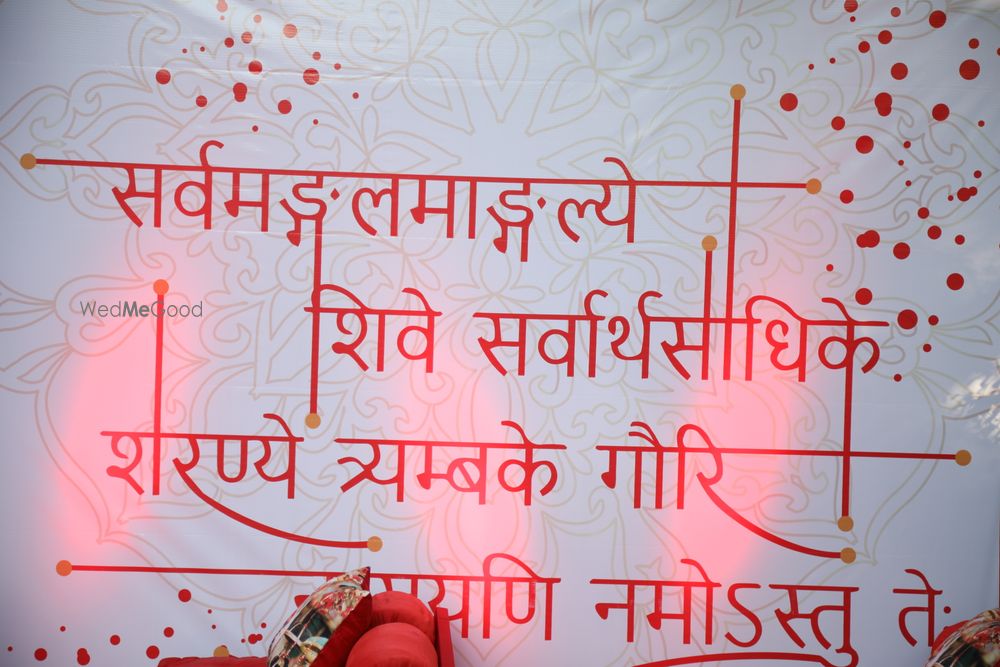 सर्वमङ्गलमाङ्गल्ये
WedMeGood
शिवे सर्वार्थसाधिके
शरण्ये त्र्यम्बके गौरि
नमोऽस्तु ते